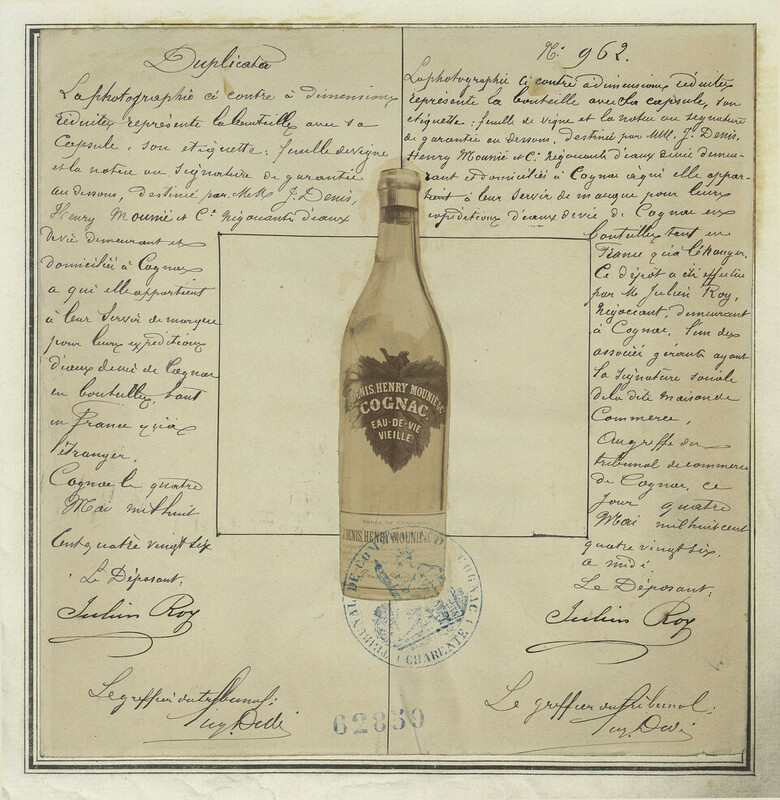 Duplicata
La photographie ci contre à dimensions
réduites représente la bouteille avec sa
Capsule, son etiquette: feuille de vigne
et la notice ou signature de garantie
au dessous, destinée par MM. J. Denis,
Henry Mounié et Cie Négociants d'eaux
de vie demeurant et
domiciliés à Cognac
a qui elle appartient
à leur servir de marque
pour leurs expéditions
d'eaux de vie de Cognac
en bouteilles, tant
en France qu'à
l'étranger.
Cognac le quatre
Mai mil huit
cent quatre vingt six
Le Déposant,
Julien Roy
Le greffier du tribunal:
No 962.
La photographie ci contre à dimensions réduites
représente la bouteille avec sa capsule, son
etiquette: feuille de vigne et la notice ou signature
de garantie au dessous, destinée par MM. J. Denis,
Henry Mounié et Cie Négociants d'eaux de vie demeu-
rant et domiciliés à Cognac à qui elle appar-
tient à leur servir de marque pour leurs
expéditions d'eaux de vie de Cognac en
bouteilles tant en
France qu'à l'étranger.
Ce dépôt a été effectué
par M. Julien Roy,
Négociant, demeurant
à Cognac, l'un des
associés gérants ayant
la signature sociale
de la dite maison de
Commerce,
Au greffe du
tribunal de commerce
de Cognac, ce
jour quatre
Mai mil huit cent
quatre vingt six.
a midi.
Le Déposant:
Julien Roy
Le greffier du tribunal:
J. DENIS, HENRY MOUNIÉ & Co
COGNAC
EAU-DE-VIE
VIEILLE
J. DENIS, HENRY MOUNIÉ & Co
TRIBUNAL DE COMMERCE DE COGNAC (CHARENTE)
62859